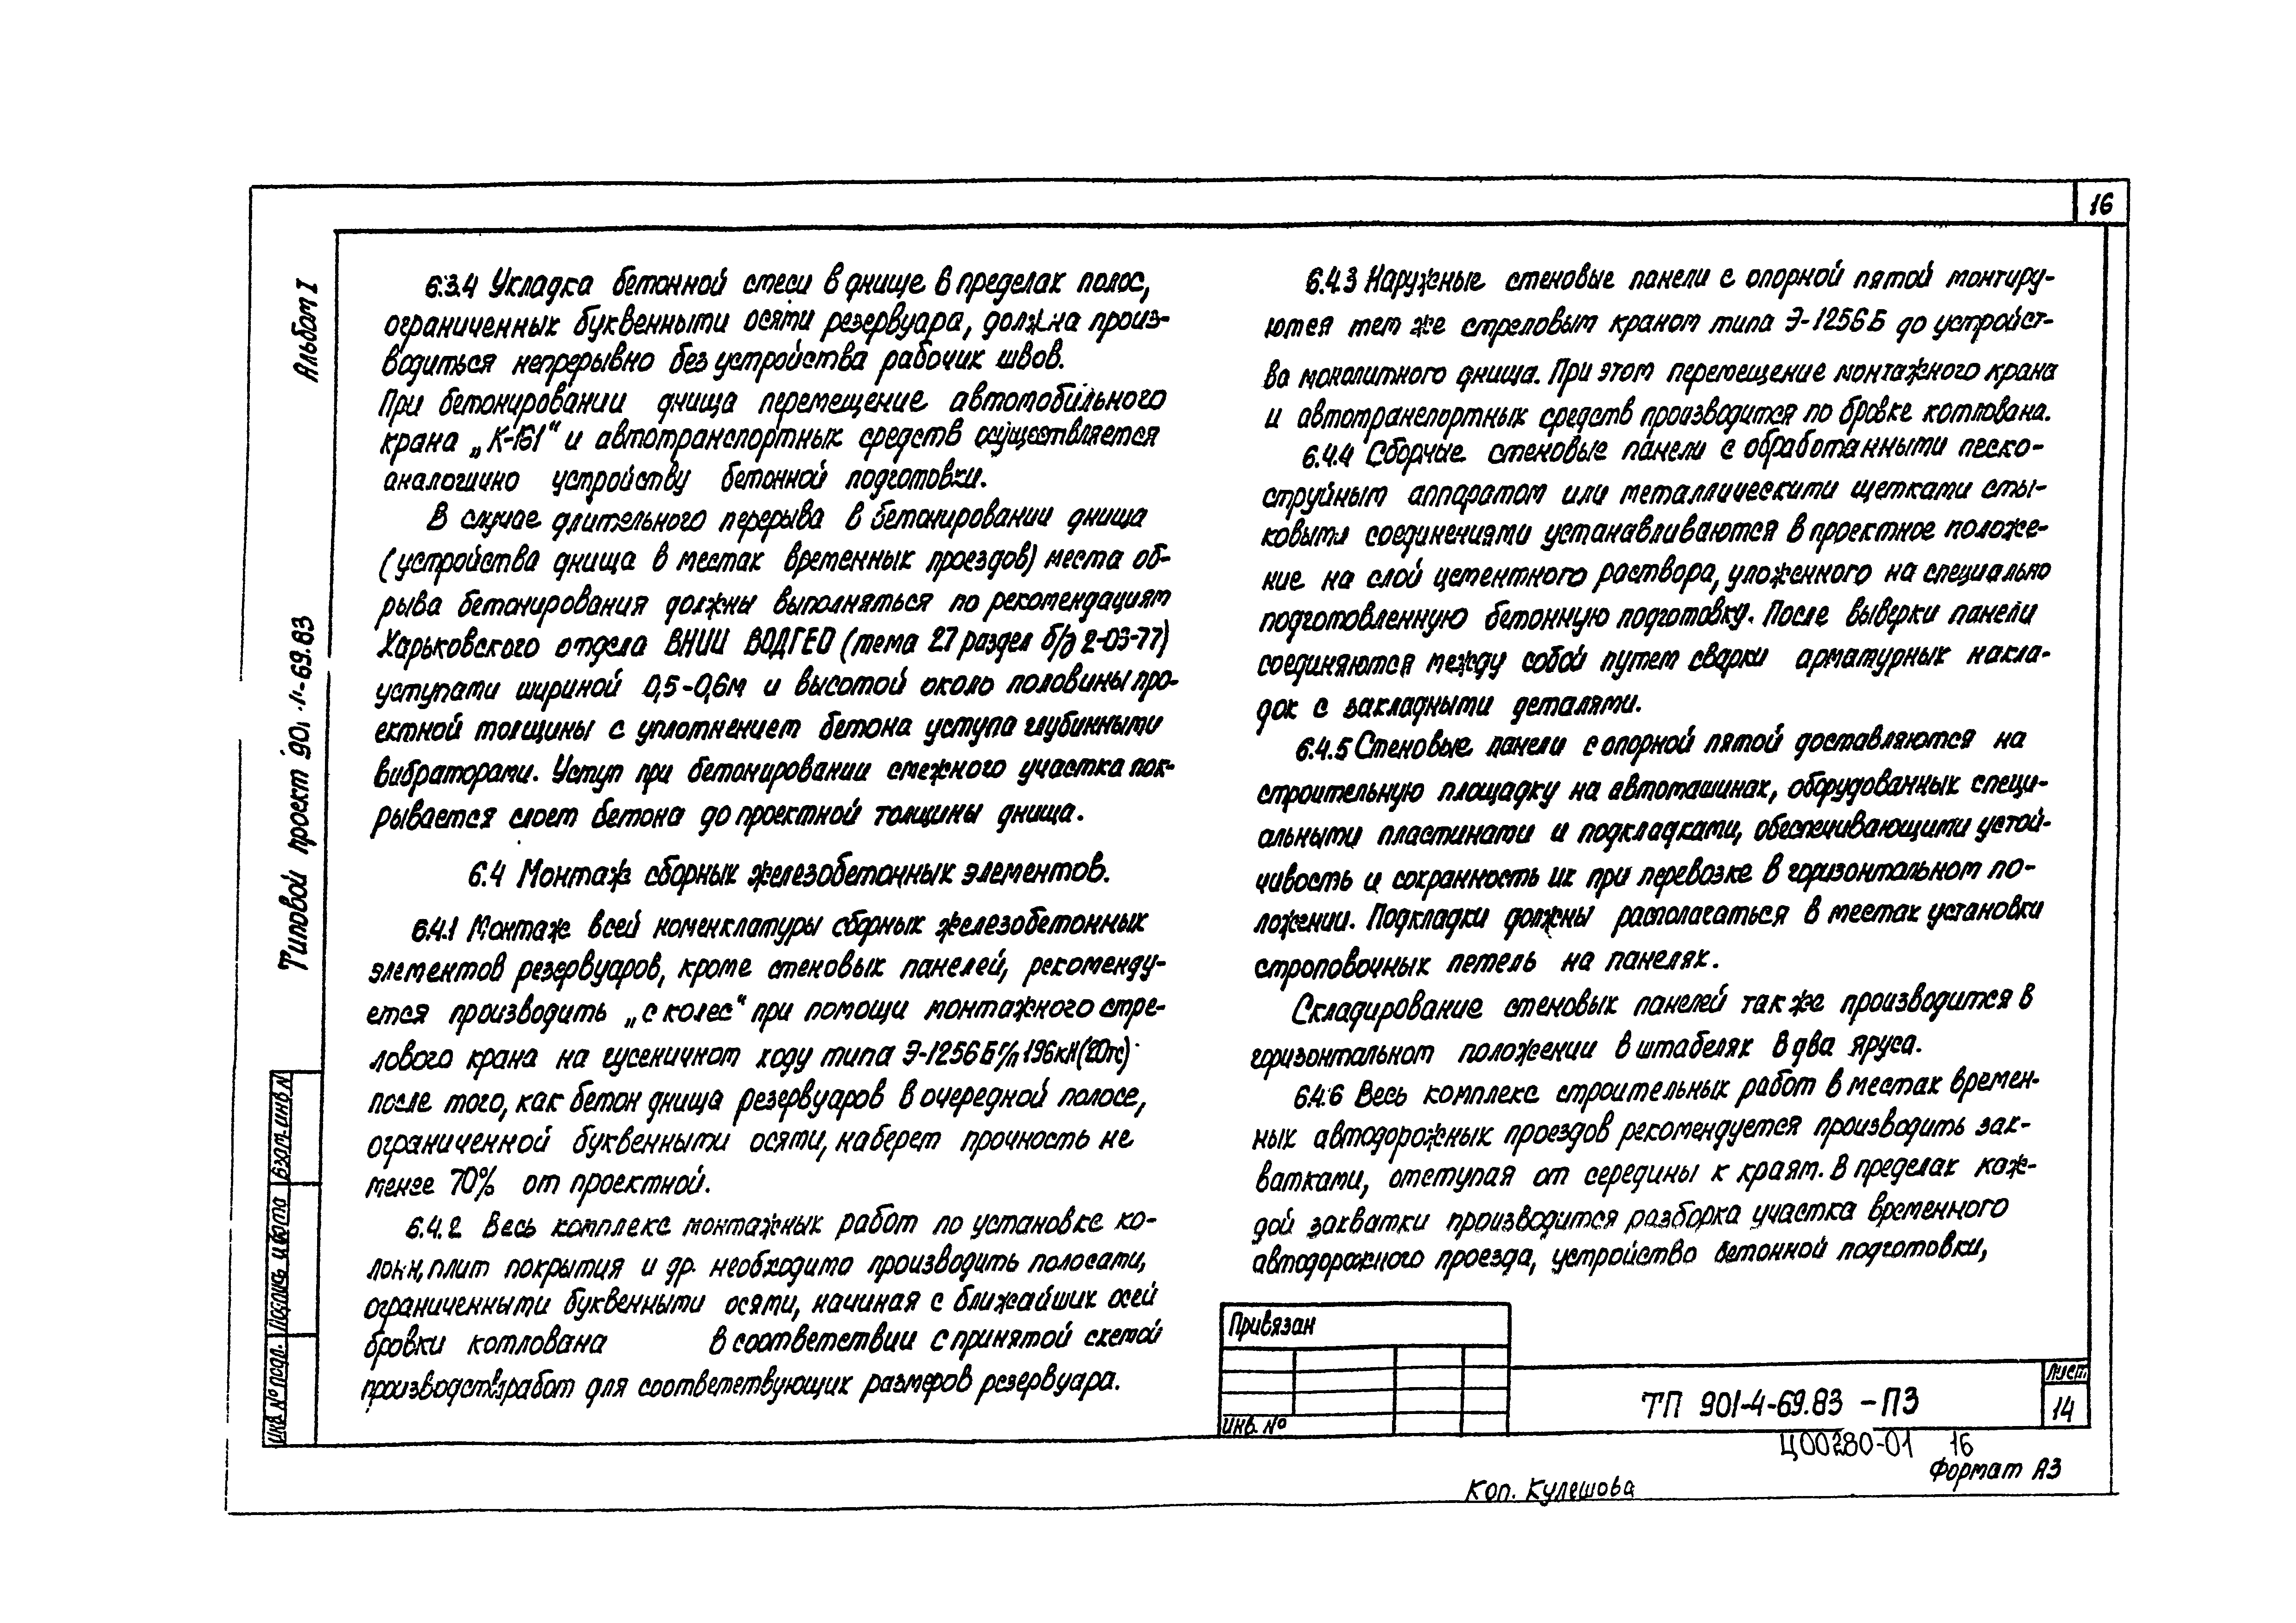 16
Альбом I
Типовой проект 901-4-69.83
6.3.4 Укладка бетонной смеси в днище в пределах полос,
ограниченных буквенными осями резервуара, должна произ-
водиться непрерывно без устройства рабочих швов.
При бетонировании днища перемещение автомобильного
крана „К-161" и автотранспортных средств осуществляется
аналогично устройству бетонной подготовки.
В случае длительного перерыва в бетонировании днища
(устройства днища в местах временных проездов) места об-
рыва бетонирования должны выполняться по рекомендациям
Харьковского отдела ВНИИ ВОДГЕО (тема 27 раздел б/д 2-03-77)
уступами шириной 0,5-0,6м и высотой около половины про-
ектной толщины с уплотнением бетона уступа глубинными
вибраторами. Уступ при бетонировании смежного участка пок-
рывается слоем бетона до проектной толщины днища.
6.4 Монтаж сборных железобетонных элементов.
6.4.1 Монтаж всей номенклатуры сборных железобетонных
элементов резервуаров, кроме стеновых панелей, рекоменду-
ется производить „с колес" при помощи монтажного стре-
лового крана на гусеничном ходу типа Э-1256Б г/п 196кН(20тс)
после того, как бетон днища резервуаров в очередной полосе,
ограниченной буквенными осями, наберет прочность не
менее 70% от проектной.
6.4.2 Весь комплекс монтажных работ по установке ко-
лонн, плит покрытия и др. необходимо производить полосами,
ограниченными буквенными осями, начиная с ближайших осей
бровки котлована в соответствии с принятой схемой
производства работ для соответствующих размеров резервуара.
6.4.3 Наружные стеновые панели с опорной пятой монтиру-
ются тем же стреловым краном типа Э-1256Б до устройст-
ва монолитного днища. При этом перемещение монтажного крана
и автотранспортных средств производится по бровке котлована.
6.4.4 Сборные стеновые панели с обработанными песко-
струйным аппаратом или металлическими щетками сты-
ковыми соединениями устанавливаются в проектное положе-
ние на слой цементного раствора, уложенного на специально
подготовленную бетонную подготовку. После выверки панели
соединяются между собой путем сварки арматурных накла-
док с закладными деталями.
6.4.5 Стеновые панели с опорной пятой доставляются на
строительную площадку на автомашинах, оборудованных специ-
альными пластинами и подкладками, обеспечивающими устой-
чивость и сохранность их при перевозке в горизонтальном по-
ложении. Подкладки должны располагаться в местах установки
строповочных петель на панелях.
Складирование стеновых панелей также производится в
горизонтальном положении в штабелях в два яруса.
6.4.6 Весь комплекс строительных работ в местах времен-
ных автодорожных проездов рекомендуется производить зах-
ватками, отступая от середины к краям. В пределах каж-
дой захватки производится разборка участка временного
автодорожного проезда, устройство бетонной подготовки,
Взам. инв. N
Подпись и дата
Инв. N° подл.
Привязан
Инв. N°
ТП 901-4-69.83 -ПЗ
Лист
14
Ц00280-01 16
Формат А3
Коп. Кулешова